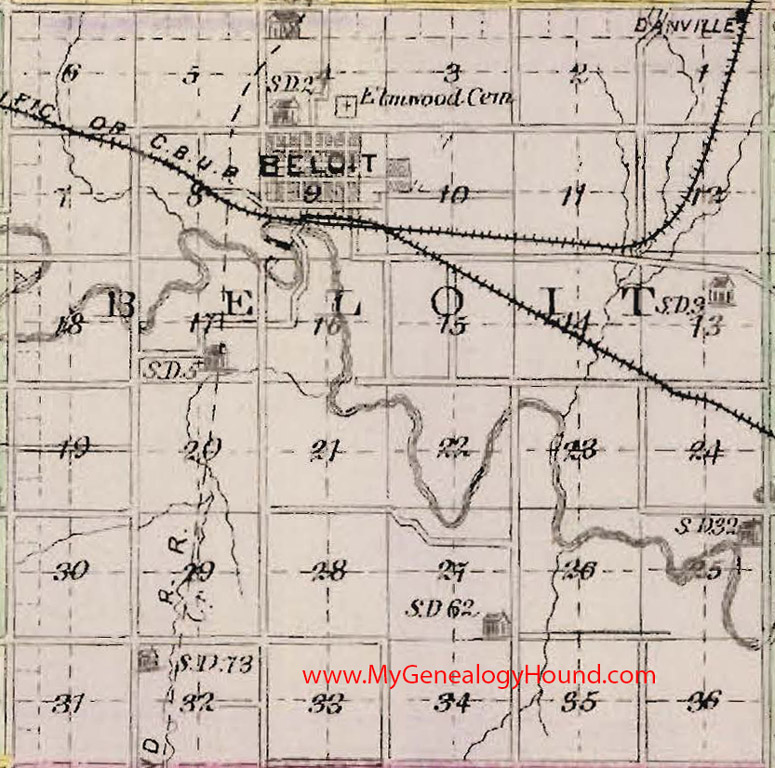 DANVILLE
6 5 4 3 2 1
S.D.2
Elmwood Cem
PIC. OR C.B.U.P.
BELOIT
7 8 9 10 11 12
BELOIT
S.D.3
18 17 16 15 14 13
S.D.5
19 20 21 22 23 24
S.D.32
30 29 28 27 26 25
R.R.
S.D 62
S.D.73
www.MyGenealogyHound.com
31 32 33 34 35 36